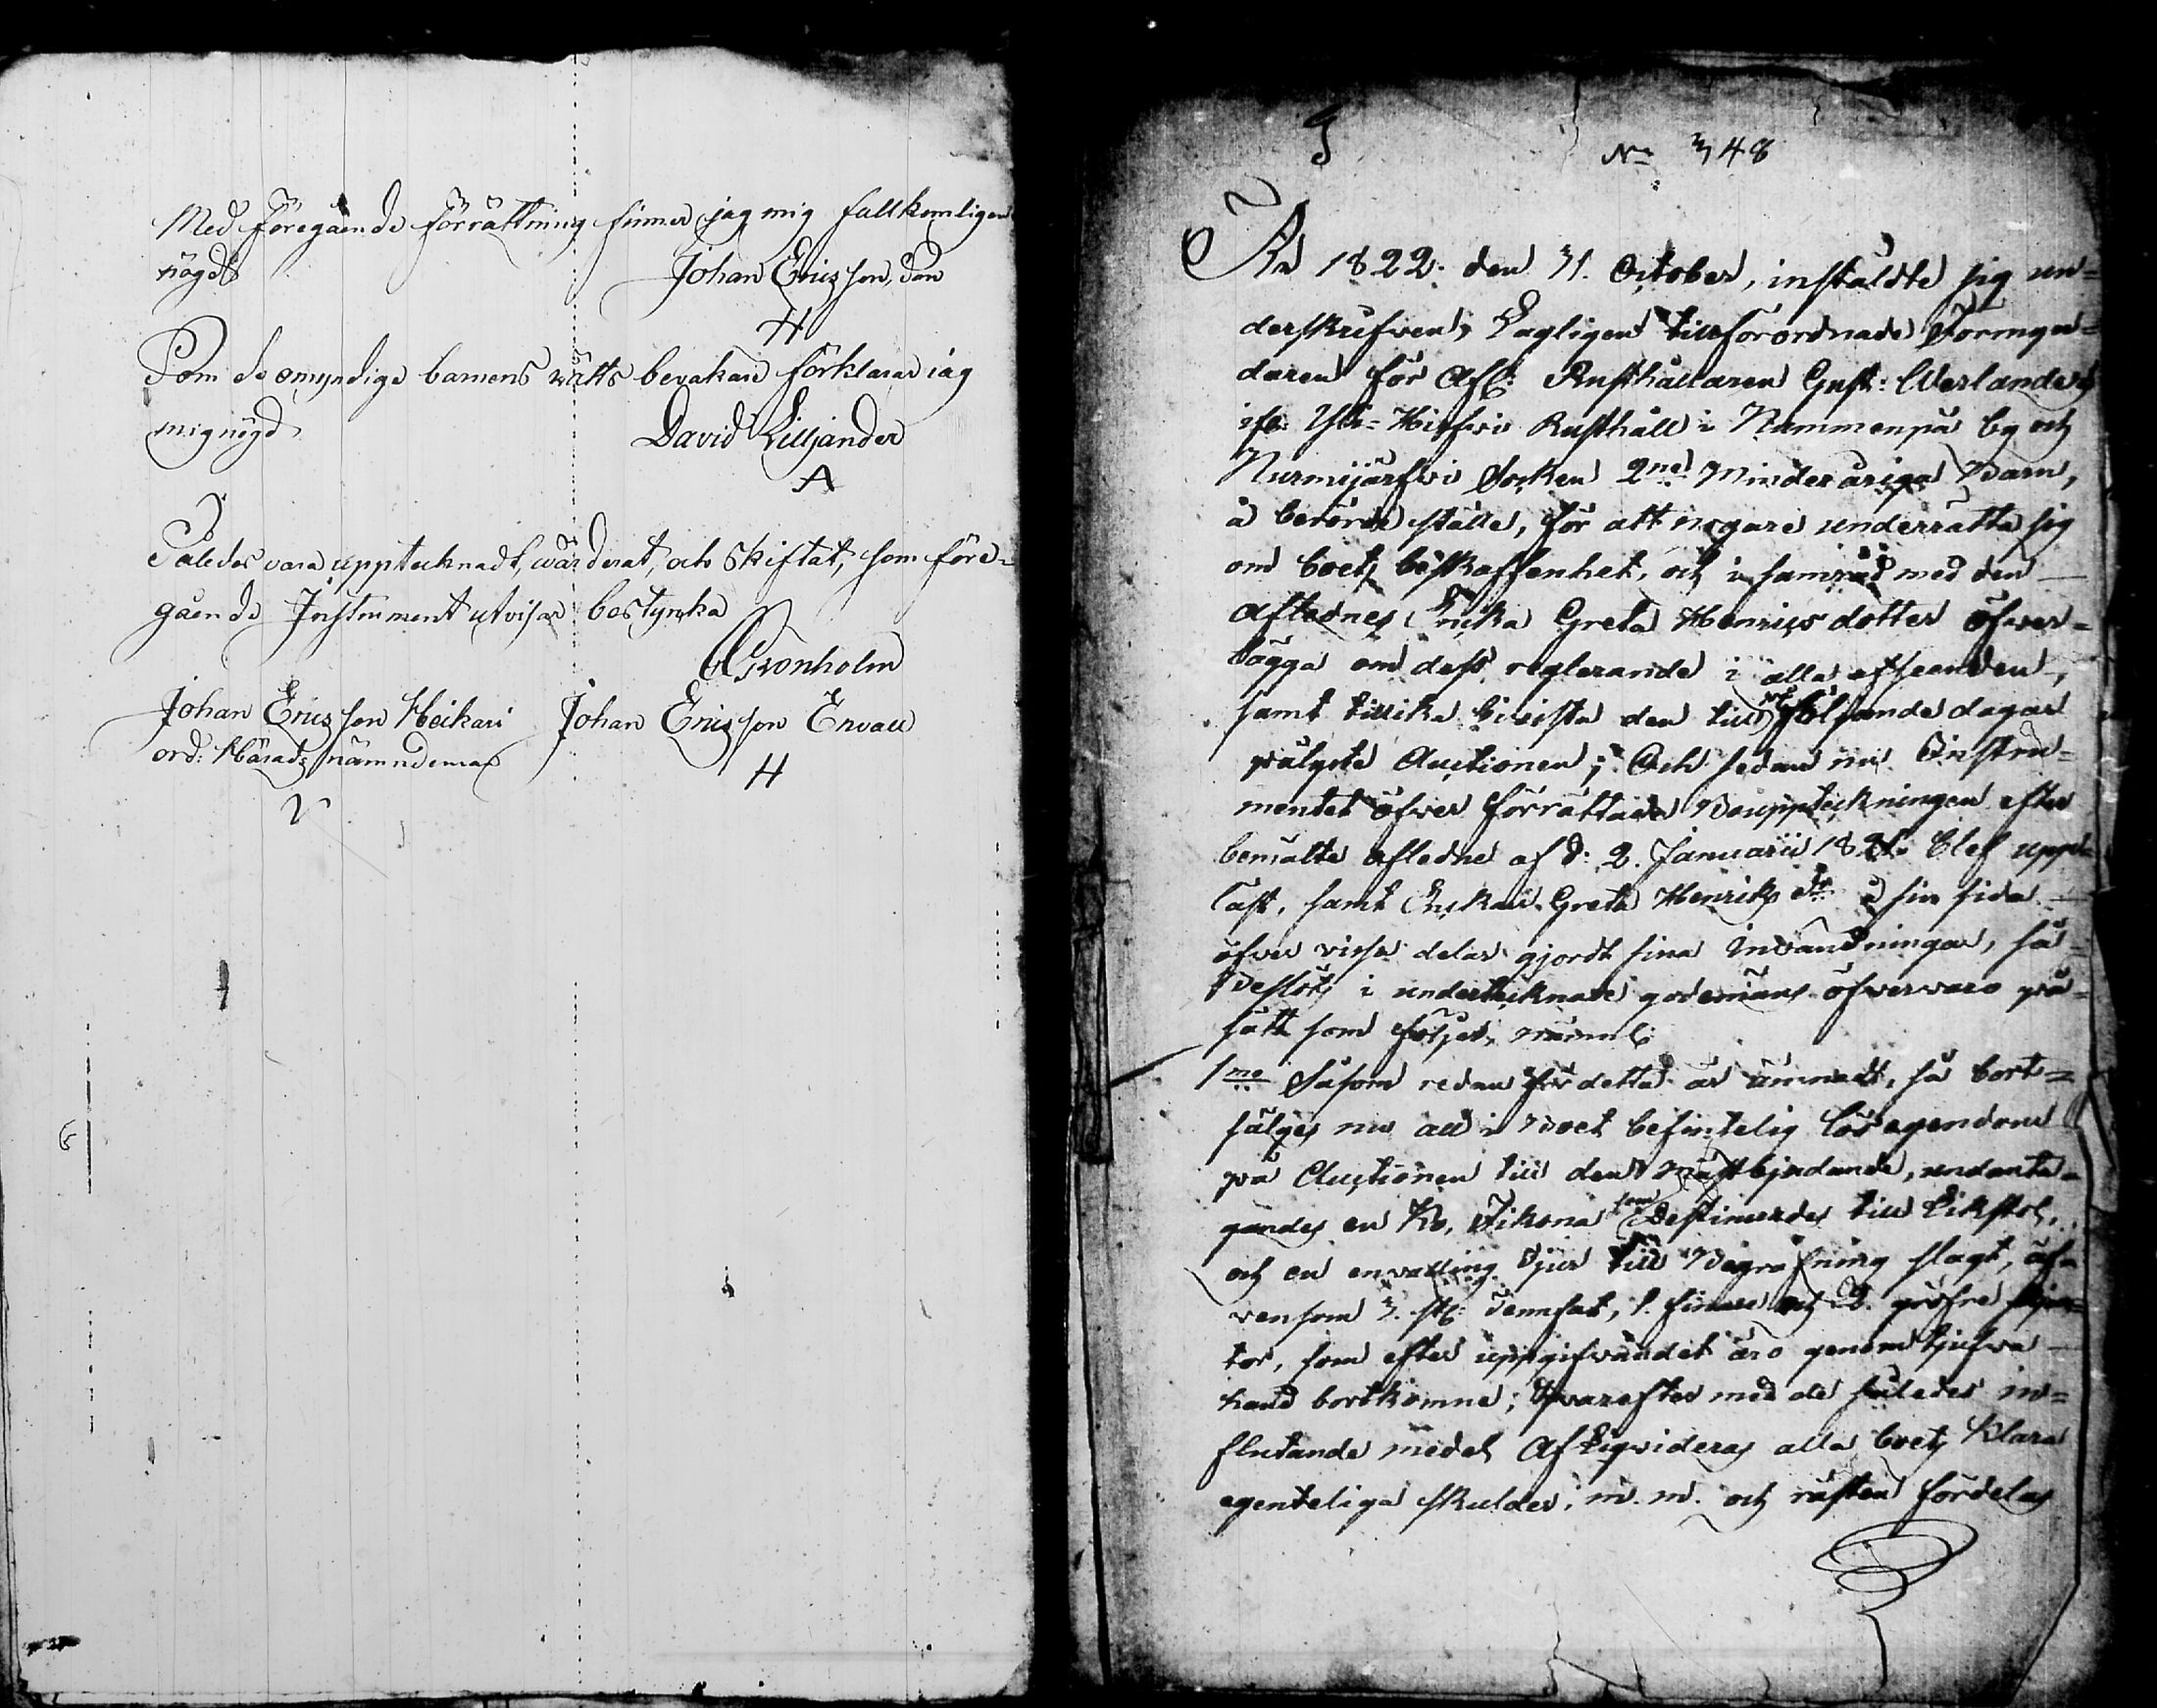 Med föregående förrättning finner jag mig fullkomligen
nögd
Johan Ericsson, Son
H
Som de omyndige barnens rätts bevakare förklarar jag
mig nögd
David Lilljander
A
Således vara upptecknadt, värderat, och Skiftat, som före-
gående Instrument utvisar bestyrka
Gronholm
Johan Ericsson Heikari Johan Ericsson Ervall
ord: Härads nämndeman
H
No 348
År 1822. den 31. October, instäldte sig un-
derskrifven, Lagligen tillförordnade Förmyn-
daren för Afl: Rusthållaren Gust: Verlanders
ifr: Yli-Hirfwi Rusthåll i Nummenpää by och
Nurmijärfwi Socken 2ne Minderåriga Barn,
å berörde ställe, för att nogare underrätta sig
om boets beskaffenhet, och i samråd med den
Aflednes Enka Greta Henricsdotter öfver-
lägga om dess reglerande i alla afseenden,
samt tillika bivista den till påföljande dagar
pålyste Auctionen; Och sedan nu Instru-
mentet öfver förrättade Bouppteckningen efter
bemälte afledne af d: 2. Januarii 1821. blef upp-
läst, samt Enkan Greta Henriks dr å sin sida
öfver vissa delar gjordt sina invändningar, så
beslöts i undertecknade godemäns öfvervaro på
sätt som följer, nämnl:
1mo Såsom redan för detta är ämnadt, så bort-
säljes nu all i Boet befintelig lösegendom
på Auctionen till den Mästbjudande, undanta-
gandes en Ko, Tikona som Destinerades till Likstol,
och en envalling Djur till Begrafning slagt, äf-
vensom 3. st: Tennfat, 1. finare och 2. gröfre skjor-
tor, som efter uppgifvandet äro genom tjufva
hand bortkomne; hvarefter med de således in-
flutande medel Afliqvideras alla boets klara
egenteliga skulder, m. m. och rästen fördelas